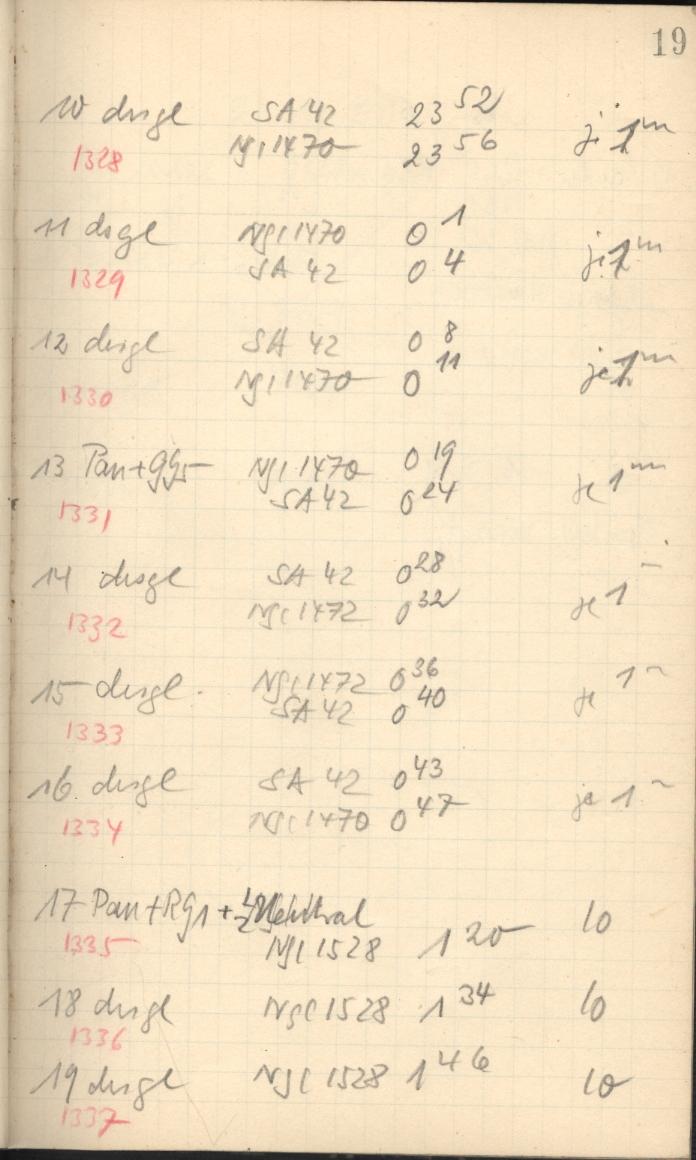 19
10 desgl SA 42 23 52 je 1m
1328 Ngc 1470 23 56
11 dsgl Ngc 1470 0 1 je 1m
1329 SA 42 0 4
12 desgl SA 42 0 8 je 1m
1330 Ngc 1470 0 11
13 Pan+GG5 Ngc 1470 0 19 je 1m
1331 SA 42 0 24
14 desgl SA 42 0 28 je 1
1332 Ngc 1472 0 32
15 desgl. Ngc 1472 0 36 je 1
1333 SA 42 0 40
16 desgl SA 42 0 43 je 1
1334 Ngc 1470 0 47
17 Pan+RG1+ Neutral
1335 Ngc 1528 1 20 10
18 desgl Ngc 1528 1 34 10
1336
19 desgl Ngc 1528 1 46 10
1337